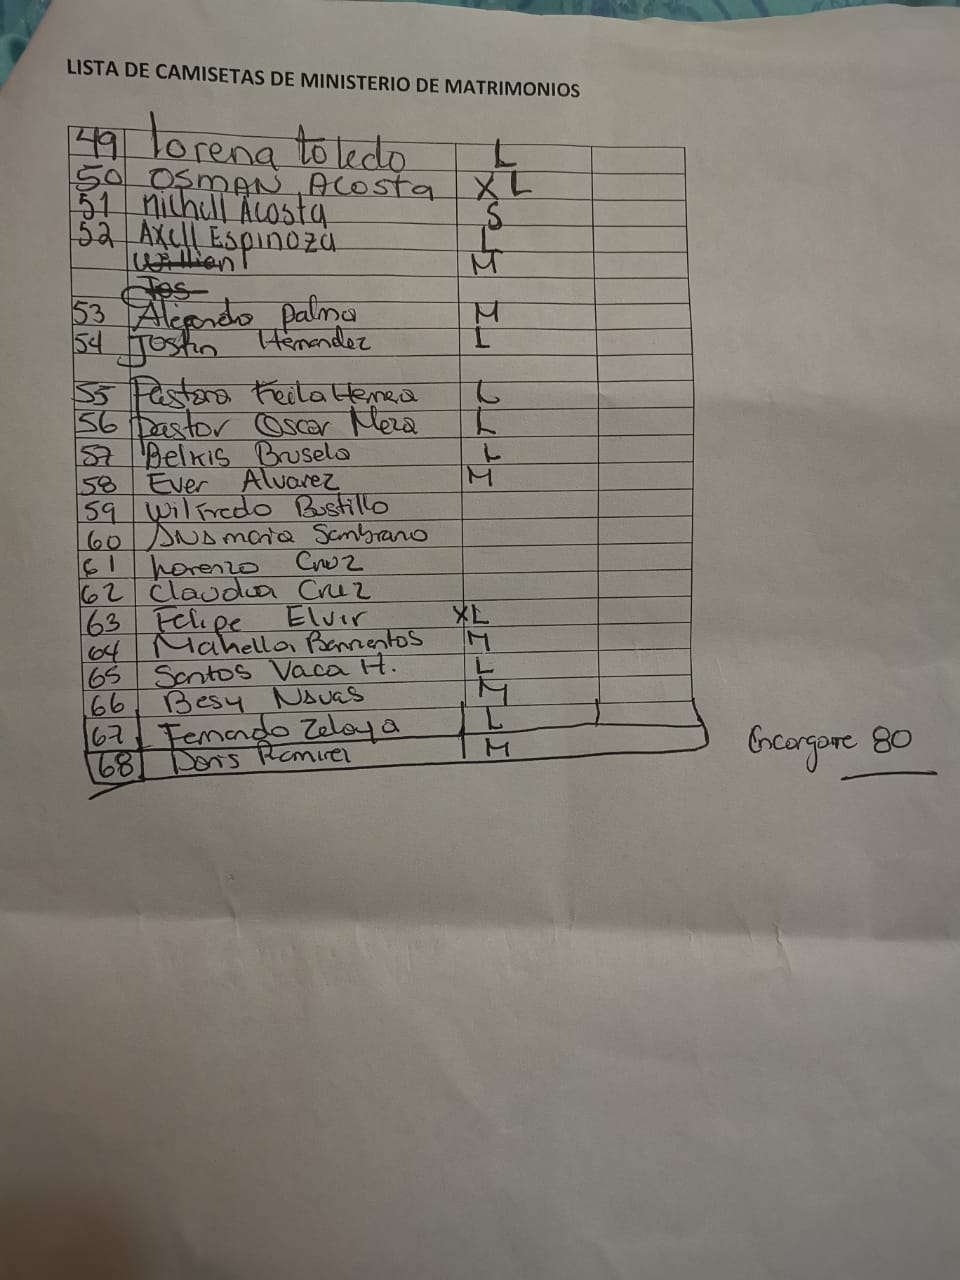 LISTA DE CAMISETAS DE MINISTERIO DE MATRIMONIOS
49 lorena toledo L
50 OSMAN ACosta XL
51 Michell Acosta S
52 Axell Espinoza L
Willian M
Jos
53 Alejandro palma M
54 Jostin Hernandez L
55 Pastora Keila L
56 pastor Oscar Meza L
57 Belkis Brusela L
58 Ever Alvarez M
59 Wilfredo Bustillo
60 ANA maria Sambrano
61 Lorenzo Cruz
62 Claudia Cruz
63 Felipe Elvir XL
64 Barrientos M
65 Santos Vaca H. L
66 Besy Navas M
67 Fernando Zelaya L
68 Doris Ramirez M
Encargare 80